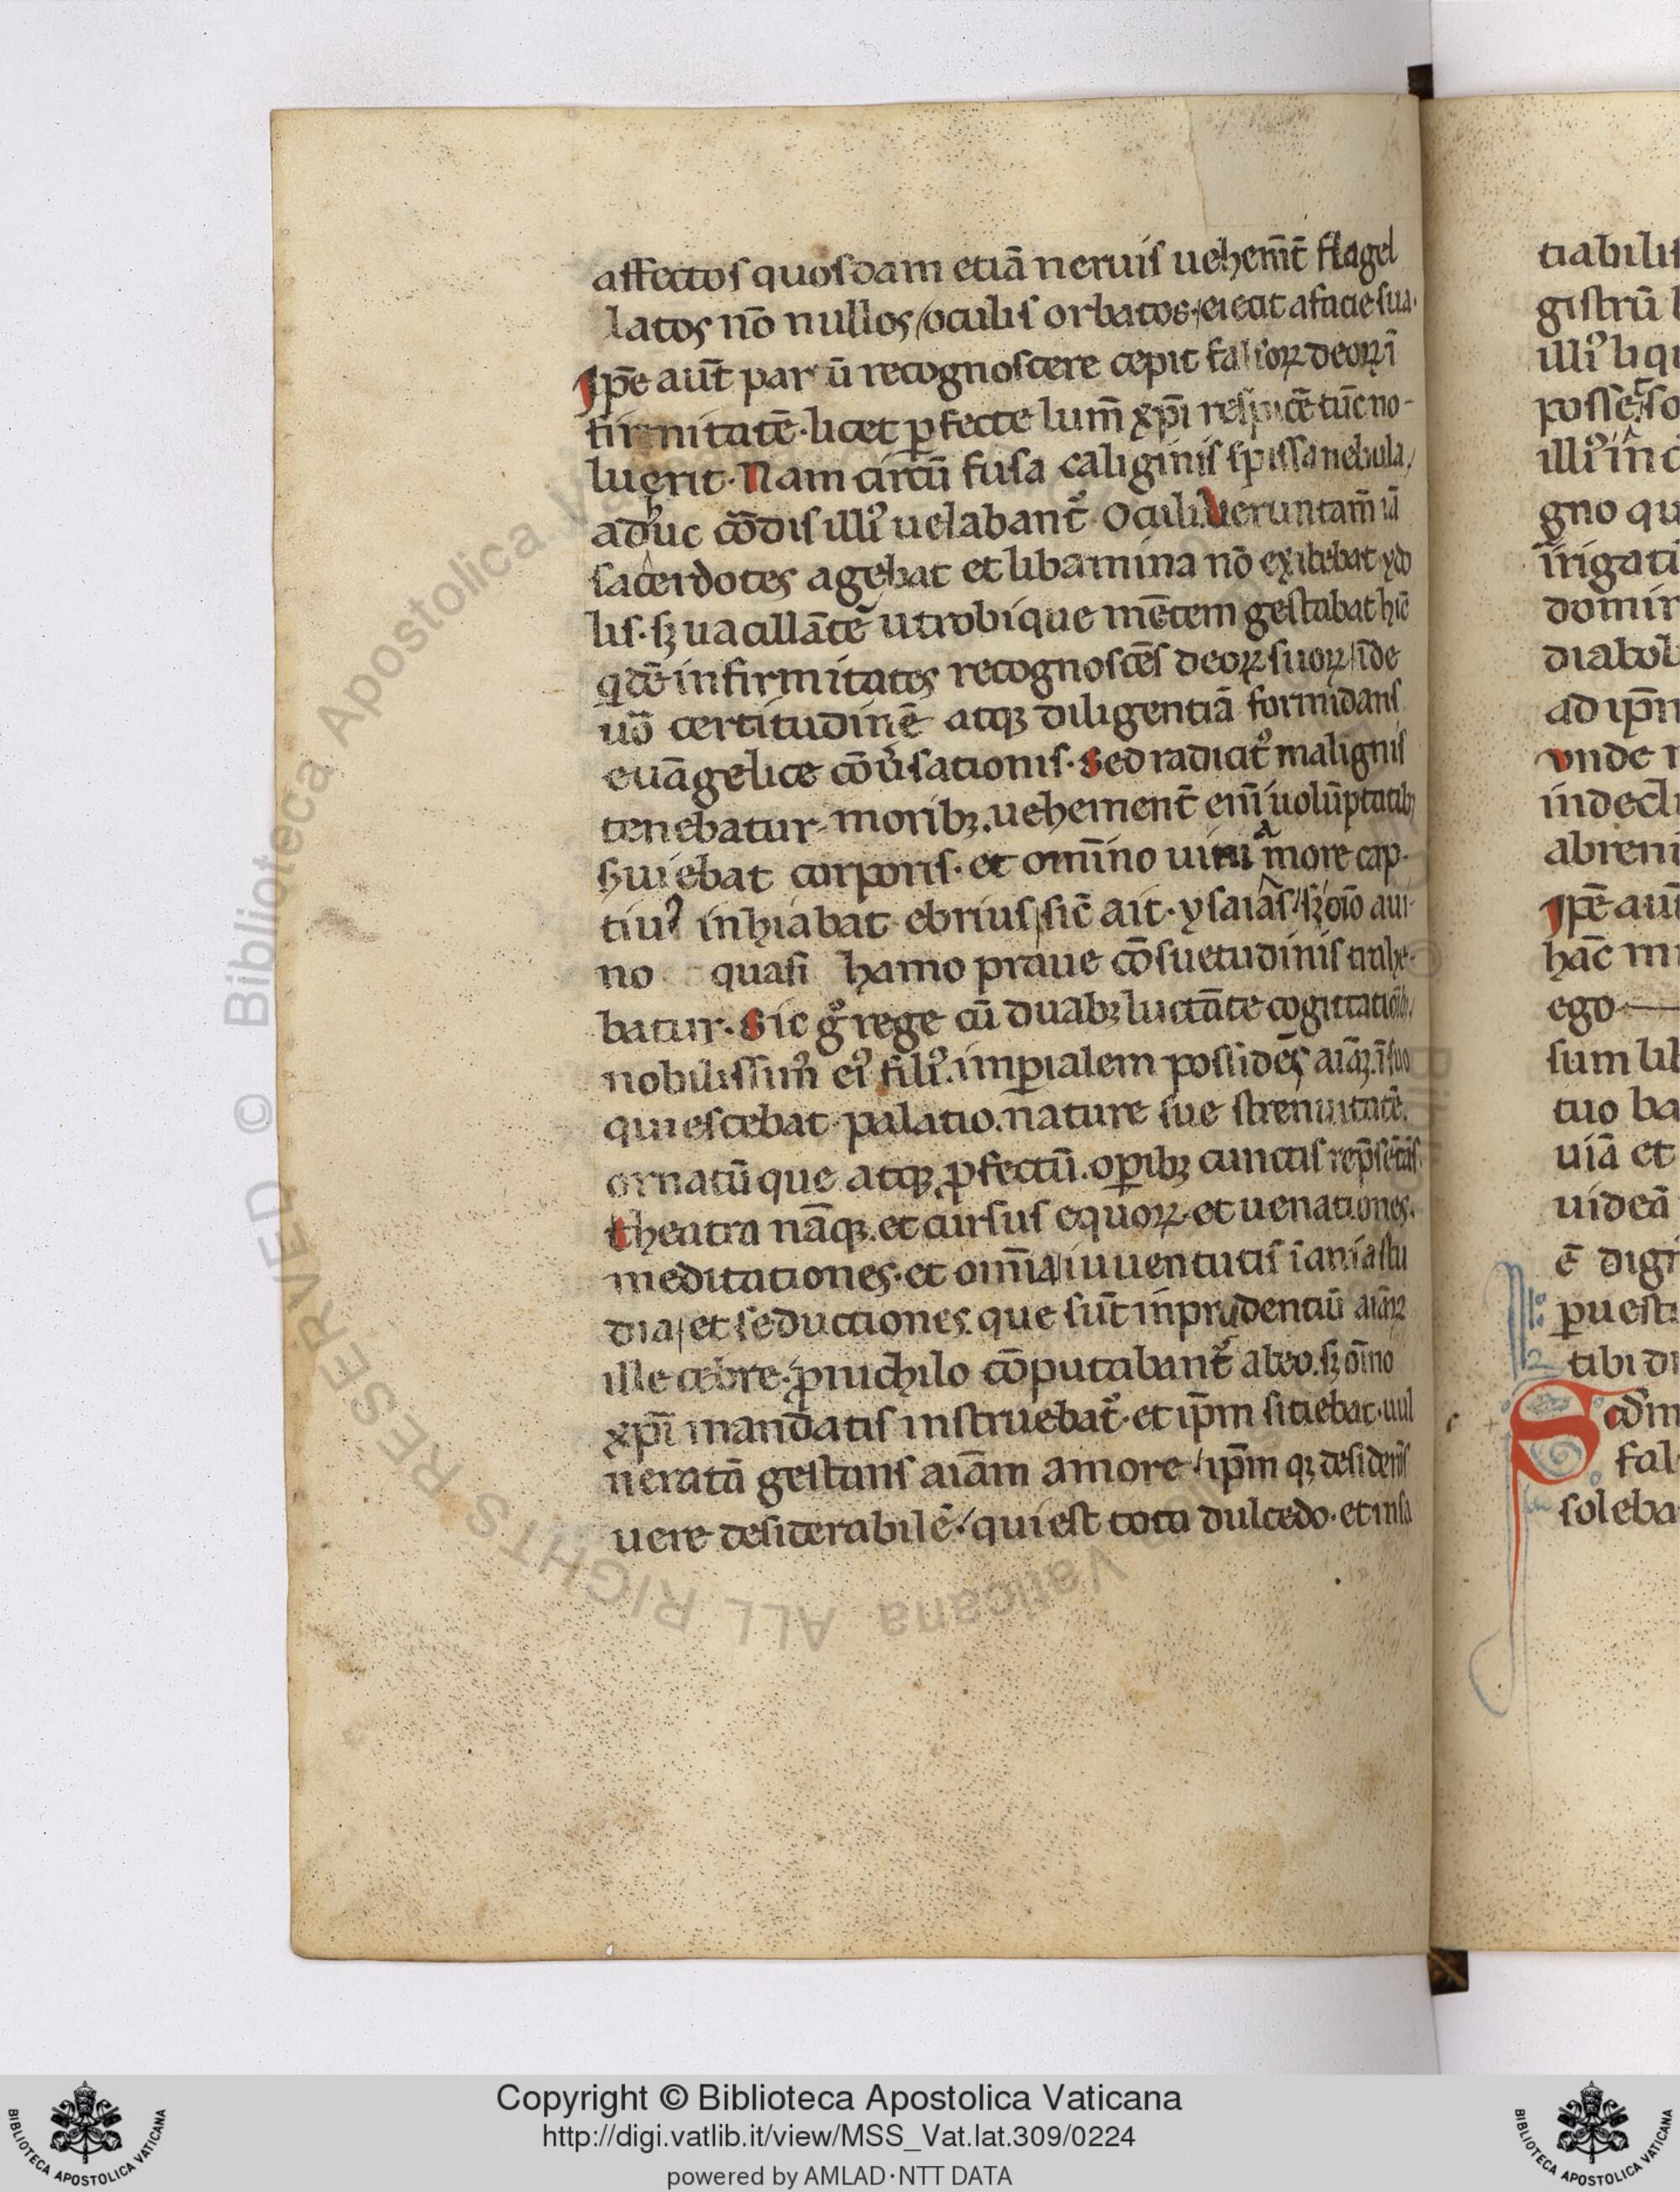 affectos quosdam etiā neruis uehem̄t̄ flagel
latos nō nullos / oculis orbatos · eiecit a facie sua ·
Ip̄e aūt par ū recognoscere cepit falsoꝝ deoꝝ ī
firmitatē · licet ꝑfecte lum̄ xp̄i respicē tūc no-
luerit · Nam circū fusa caliginis spissa nebula /
adhuc cō̄dis illiꝰ uelabant᷑ oculi. Ueruntam̄
sacerdotes agebat et libamina nō exibebat ydo
lis · sꝫ uacillātē utrobique mētem gestabat hic̄
qͥdē infirmitates recognoscēs deoꝝ suoꝝ / īde
uō certitudinē atqꝫ diligentiā formidans
euāgelice cōūsationis · Sed radicit᷑ malignis
tenebatur moribꝫ. uehement̄ eni᷑ uolūptatibꝫ
suiebat corporis · et omīno uini amore cap-
tiuꝰ inhiabat ebrius / sic̄ ait · ysaias / sꝫ oīo a ui-
no quasi hamo praue cōsuetudinis trahe-
batur · Sic gͦ rege cū duabꝫ luctāte cogitationibꝫ /
nobilissimꝰ eiꝰ filiꝰ. imꝑialem possidēs aīaꝫ. ī suo
quiescebat palatio. nature sue strenuitatē.
ornatūque atqꝫ ꝓfectū. oꝑibꝫ cunctis rep̄sētās
theatra nāqꝫ. et cursus equoꝝ · et uenationes.
meditationes · et om̄ia / iuuentutis inania stu
dia / et seductiones. que sūt inprudentiū aīaꝝ
illecebre · ꝓ nichilo cōputabant᷑ ab eo. sꝫ oīno
xp̄i mandatis instruebat᷑ · et ip̄m sitiebat · uul
neratā gestans aīam amore / ip̄m qꝫ desiderās
uere desiderabilē / qui est tota dulcedo · et insa
tiabilis
gistrū
illiꝰ
illiꝰ
gno
irrigati
domin
diabol
ad ip̄m
unde
indecli
abreni
Ip̄e aū
hāc mi
ego
sum
tuo ba
uiā et
uideā
ē dign
ꝑ uest
tibi di
fal
soleba
© Biblioteca Apostolica Vaticana ALL RIGHTS RESERVED
Copyright © Biblioteca Apostolica Vaticana
http://digi.vatlib.it/view/MSS_Vat.lat.309/0224
powered by AMLAD·NTT DATA
BIBLIOTECA APOSTOLICA VATICANA
BIBLIOTECA APOSTOLICA VATICANA